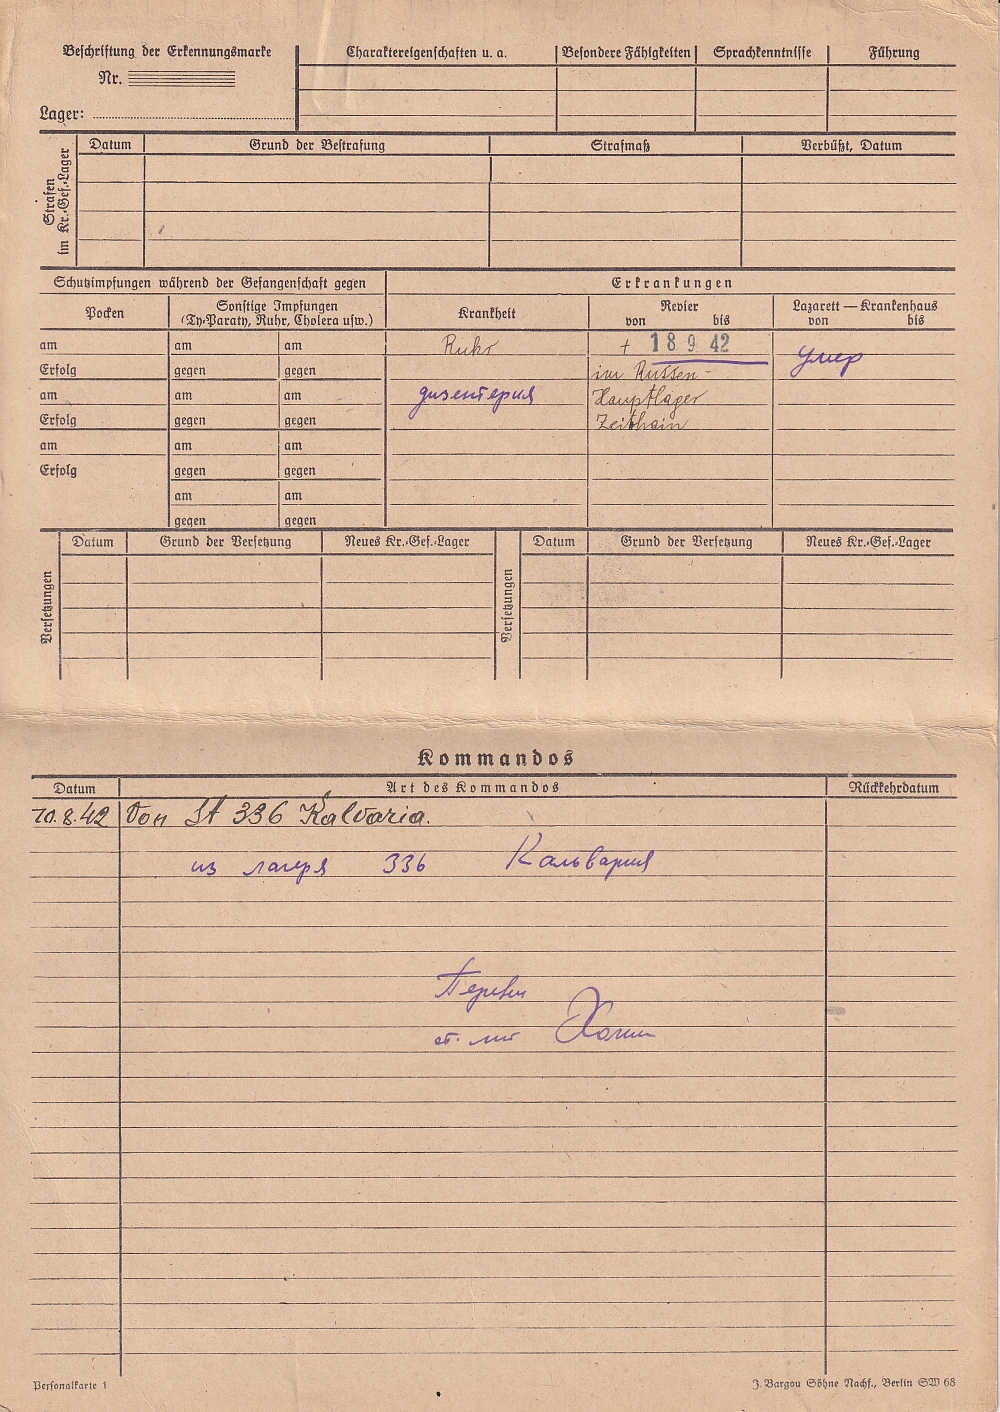 Beschriftung der Erkennungsmarke
Nr.
Lager:
Charaktereigenschaften u. a. Besondere Fähigkeiten Sprachkenntnisse Führung
Strafen
im Kr.-Gef.-Lager
Datum Grund der Bestrafung Strafmaß Verbüßt, Datum
Schutzimpfungen während der Gefangenschaft gegen
Erkrankungen
Pocken
Sonstige Impfungen
(Ty-Paraty, Ruhr, Cholera usw.)
Krankheit
Revier
von bis
Lazarett — Krankenhaus
von bis
am am am Ruhr + 18 9. 42 умер
Erfolg gegen gegen im Russen-
am am am дизентерия Hauptlager
Erfolg gegen gegen Zeithain
am am am
Erfolg gegen gegen
am am
gegen gegen
Versetzungen
Datum Grund der Versetzung Neues Kr.-Gef.-Lager
Versetzungen
Datum Grund der Versetzung Neues Kr.-Gef.-Lager
Kommandos
Datum Art des Kommandos Rückkehrdatum
10.8.42 Von St 336 Kalvaria.
из лагеря 336 Кальвария
ст. лит
Personalkarte 1
J. Bargou Söhne Nachf., Berlin SW 68